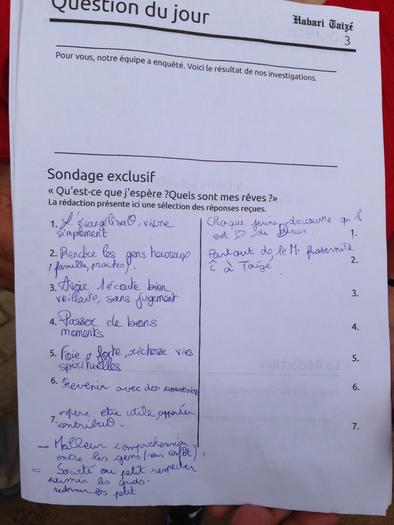 Question du jour
Habari Taizé
3
Pour vous, notre équipe a enquêté. Voici le résultat de nos investigations.
Sondage exclusif
« Qu'est-ce que j'espère ?Quels sont mes rêves ?»
La rédaction présente ici une sélection des réponses reçues.
1. L'évangélisa°, vivre
simplement
2. Rendre les gens heureux
(famille, proches).
3. Avoir l'écoute bien
veillante, sans jugement
4. Passer de bons
moments
5. Foie + forte, richesse vies
spirituelles
6. Revenir avec des
7. espere etre utile apporter
contribu° -
→ Meilleur comprehension
entre les gens (sans conflit),
= Société ou petit respecter
parmis les grds.
redonner les petit
Chaque jeune découvre qu'il
est ♡ de Dieux.
1.
Partout ds le M. fraternité
c̄ à Taizé.
2.
3.
4.
5.
6.
7.